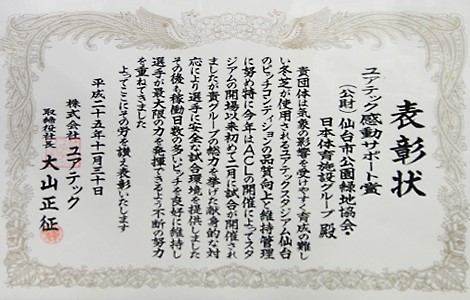 表彰状
ユアテック感動サポート賞
(公財)仙台市公園緑地協会・
日本体育施設グループ 殿
貴団体は気象の影響を受けやすく育成の難し
い冬芝が使用されるユアテックスタジアム仙台
のピッチコンディションの品質向上と維持管理
に努め特に今年はACLの開催によってスタ
ジアムの開場以来初めて二月に試合が開催され
ましたが貴グループの総力を挙げた献身的な対
応により選手に安全な試合環境を提供しました
その後も稼働日数の多いピッチを良好に維持し
選手が最大限の力を発揮できるよう不断の努力
を重ねてきました
よってここにその労を讃え表彰いたします
平成二十五年十一月三十日
株式会社 ユアテック
取締役社長 大山正征